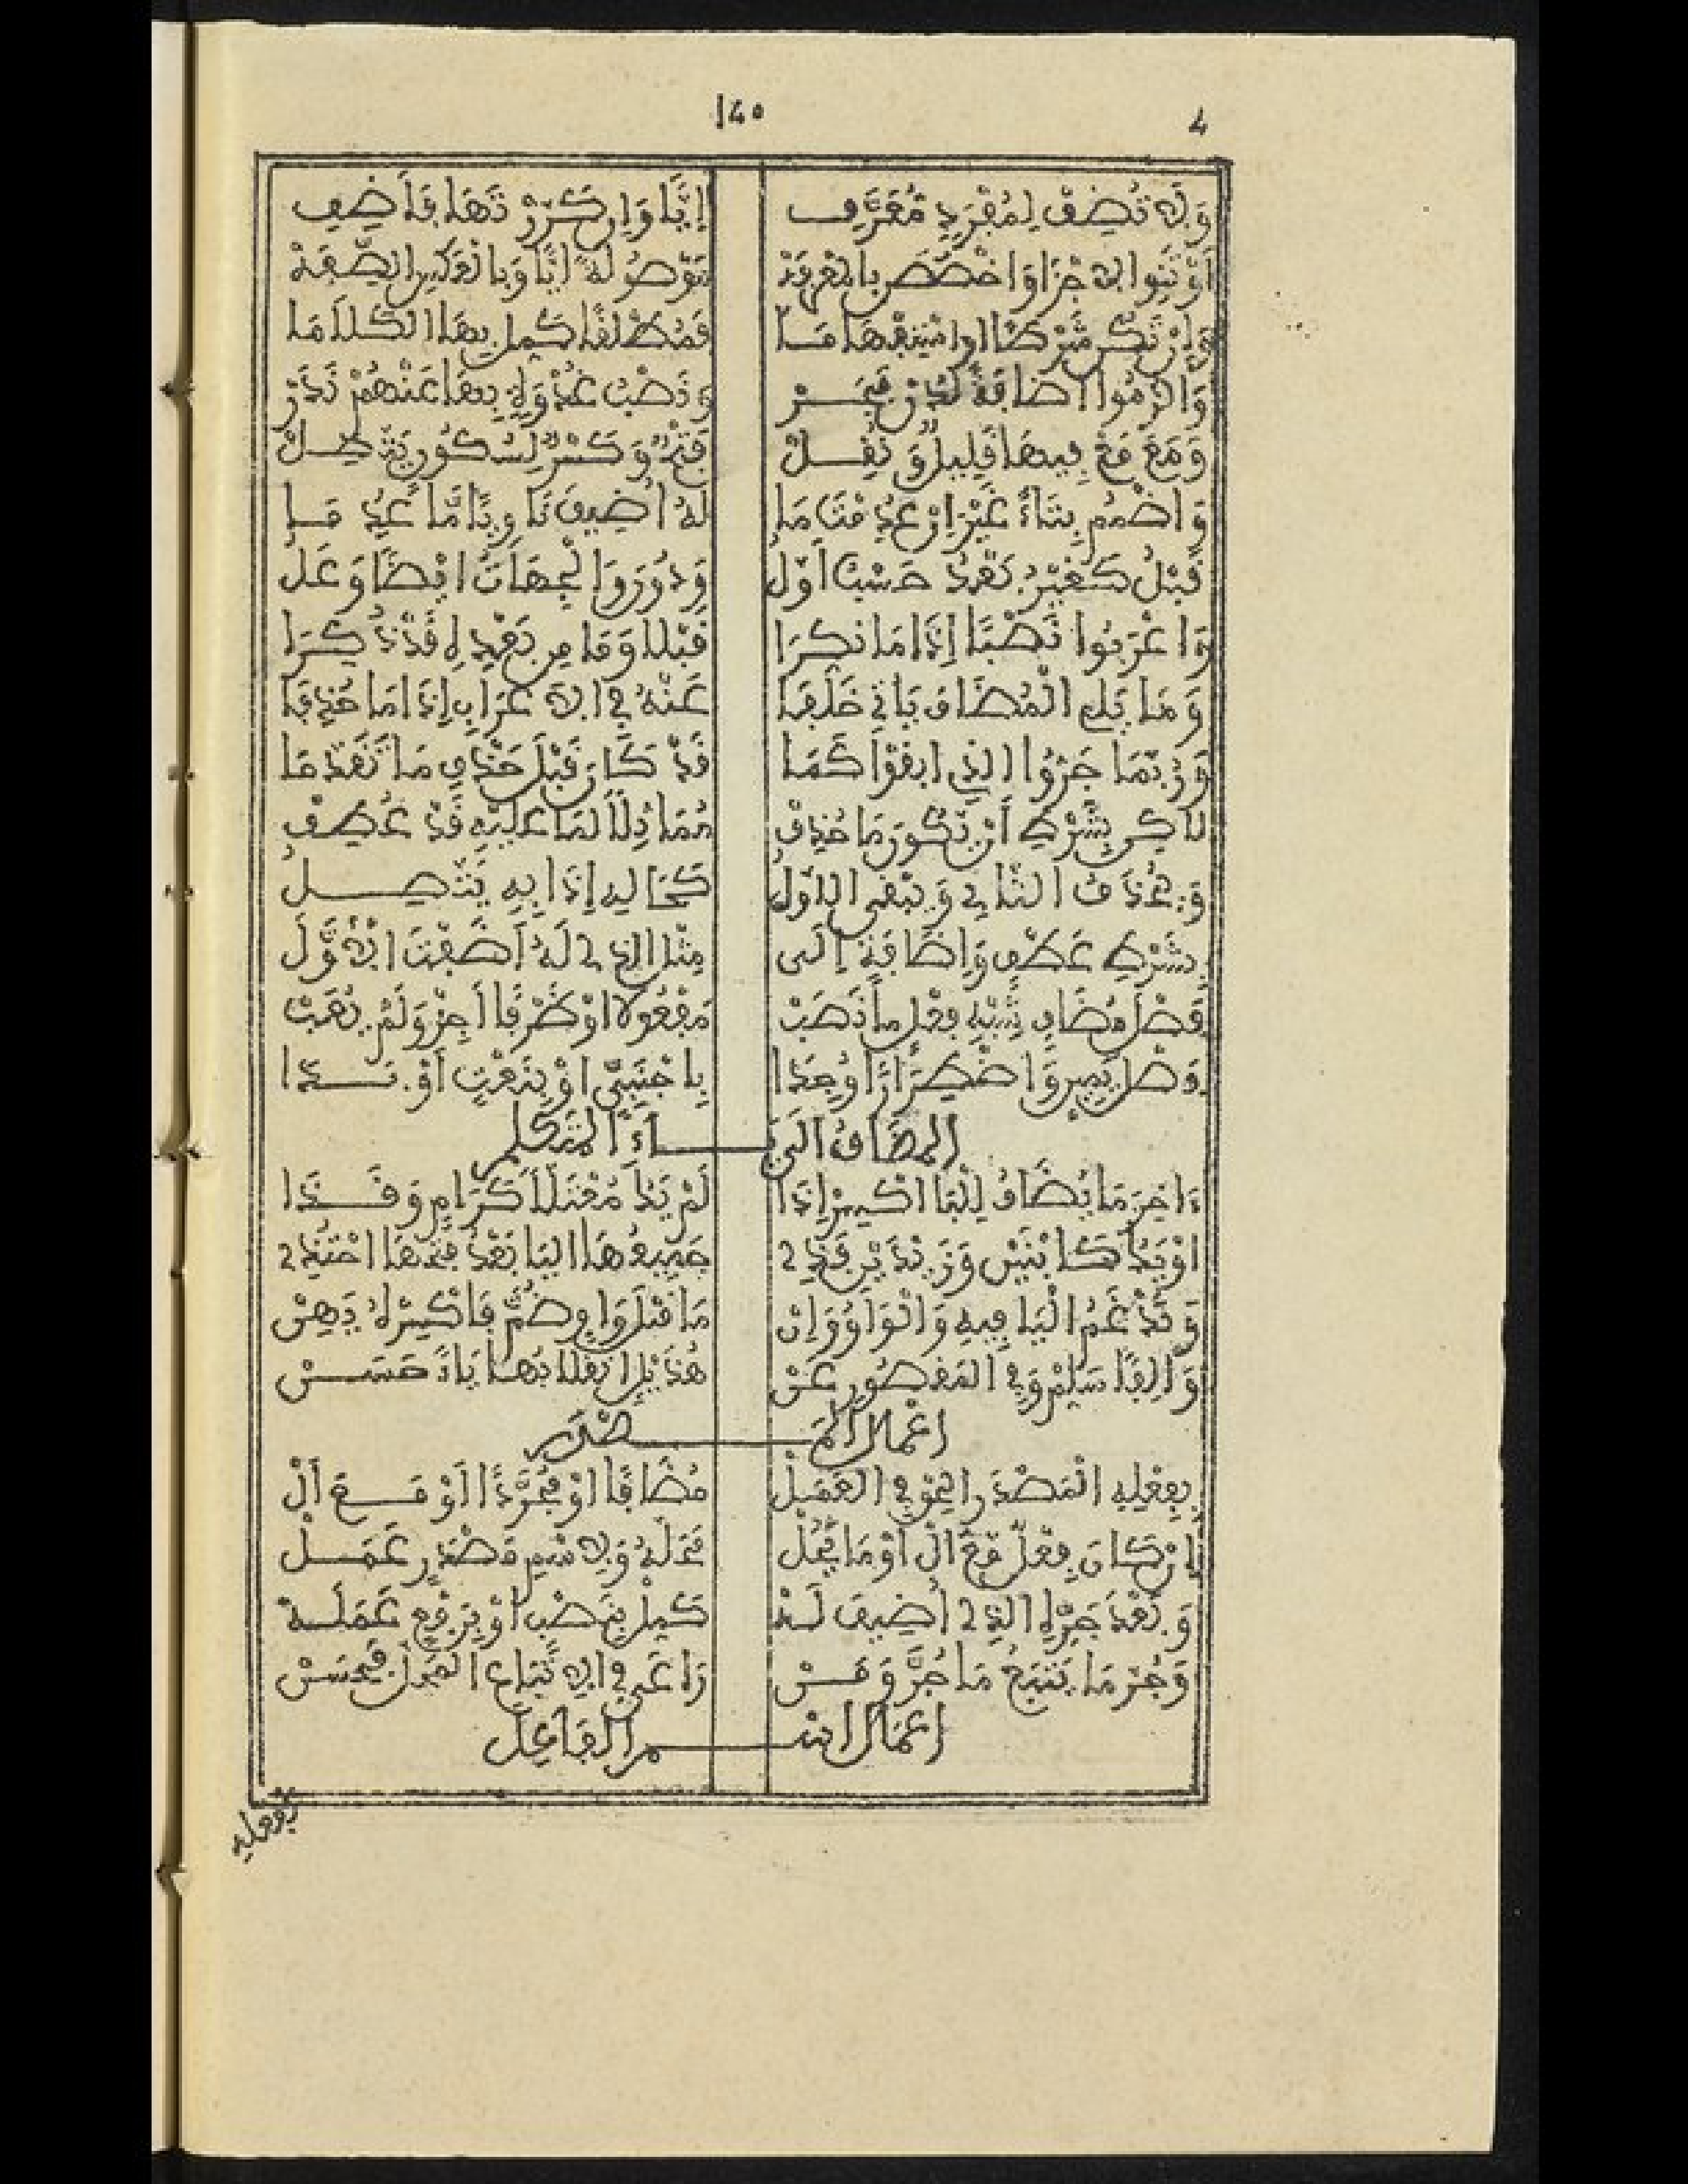 140
4
وَلَا تُضِفْ لِمُفْرَدٍ مُعَرَّفِ إِيًّا وَإِنْ كَرَّرْتَهَا فَأَضِفِ
أَوْ تَنْوِ الِاجْزَا وَاخْصُصَنْ بِالْمَعْرِفَهْ مَوْصُولَةً أَيًّا وَبِالْعَكْسِ الصِّفَهْ
وَإِنْ تَكُنْ شَرْطًا اوِ اسْتِفْهَامَا فَمُطْلَقًا كَمِّلْ بِهَا الْكَلَامَا
وَأَلْزَمُوا إِضَافَةً لَدُنْ فَجَرْ وَنَصْبُ غُدْوَةٍ بِهَا عَنْهُمْ نَدَرْ
وَمَعَ مَعْ فِيهَا قَلِيلٌ وَنُقِلْ فَتْحٌ وَكَسْرٌ لِسُكُونٍ يَتَّصِلْ
وَاضْمُمْ بِنَاءً غَيْرًا إِنْ عَدِمْتَ مَا لَهُ أُضِيفَ نَاوِيًا مَا عُدِمَا
قَبْلُ كَغَيْرُ بَعْدُ حَسْبُ أَوَّلُ وَدُونُ وَالْجِهَاتُ أَيْضًا وَعَلُ
وَأَعْرَبُوا نَصْبًا إِذَا مَا نُكِّرَا قَبْلًا وَمَا مِنْ بَعْدِهِ قَدْ ذُكِرَا
وَمَا يَلِي الْمُضَافَ يَأْتِي خَلَفَا عَنْهُ فِي الِاعْرَابِ إِذَا مَا حُذِفَا
وَرُبَّمَا جَرُّوا الذِي أَبْقَوْا كَمَا قَدْ كَانَ قَبْلَ حَذْفِ مَا تَقَدَّمَا
لَكِنْ بِشَرْطِ أَنْ يَكُونَ مَا حُذِفْ مُمَاثِلًا لِمَا عَلَيْهِ قَدْ عُطِفْ
وَيُحْذَفُ الثَّانِي وَيَبْقَى الَاوَّلُ كَحَالِهِ إِذَا بِهِ يَتَّصِلُ
بِشَرْطِ عَطْفٍ وَإِضَافَةٍ إِلَى مِثْلِ الذِي لَهُ أَضَفْتَ الَاوَّلَ
فَصْلَ مُضَافٍ شِبْهِ فِعْلٍ مَا نَصَبْ مَفْعُولًا اوْ ظَرْفًا أَجِزْ وَلَمْ يُعَبْ
فَصْلُ يَمِينٍ وَاضْطِرَارًا وُجِدَا بِأَجْنَبِيٍّ أَوْ بِنَعْتٍ أَوْ نِدَا
المضاف الى ياء المتكلم
ءَاخِرَ مَا يُضَافُ لِلْيَا اكْسِرْ إِذَا لَمْ يَكُ مُعْتَلًّا كَرَامٍ وَقَذَا
أَوْ يَكُ كَابْنَيْنِ وَزَيْدِينَ فَذِي جَمِيعُهَا الْيَا بَعْدُ فَتْحُهَا احْتُذِي
وَتُدْغَمُ الْيَا فِيهِ وَالْوَاوُ وَإِنْ مَا قَبْلَ وَاوٍ ضُمَّ فَاكْسِرْهُ يَهُنْ
وَأَلِفًا سَلِّمْ وَفِي الْمَقْصُورِ عَنْ هُذَيْلٍ انْقِلَابُهَا يَاءً حَسَنْ
اعمال المصدر
بِفِعْلِهِ الْمَصْدَرَ أَلْحِقْ فِي الْعَمَلْ مُضَافًا اوْ مُجَرَّدًا أَوْ مَعَ أَلْ
إِنْ كَانَ فِعْلٌ مَعَ أَنْ أَوْ مَا يَحُلْ مَحَلَّهُ وَلِاسْمِ مَصْدَرٍ عَمَلْ
وَبَعْدَ جَرِّهِ الذِي أُضِيفَ لَهْ كَمِّلْ بِنَصْبٍ أَوْ بِرَفْعٍ عَمَلَهْ
وَجُرَّ مَا يَتْبَعُ مَا جُرَّ وَمَنْ رَاعَى فِي الِاتْبَاعِ الْمَحَلَّ فَحَسَنْ
اعمال اسم الفاعل
كفعله